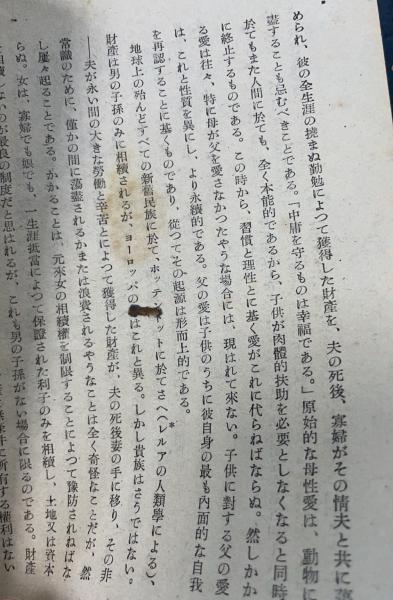 められ、彼の全生涯の撓まぬ勤勉によつて獲得した財産を、夫の死後、寡婦がその情夫と共に蕩
盡することも忌むべきことである。「中庸を守るものは幸福である。」原始的な母性愛は、動物に
於てもまた人間に於ても、全く本能的であるから、子供が肉體的扶助を必要としなくなると同時
に終止するものである。この時から、習慣と理性とに基く愛がこれに代らねばならぬ。然しかか
る愛は往々、特に母が父を愛さなかつたやうな場合には、現はれて來ない。子供に對する父の愛
は、これと性質を異にし、より永續的である。父の愛は子供のうちに彼自身の最も内面的な自我
を再認することに基くものであり、從つてその起源は形而上的である。
地球上の殆んどすべての新舊民族に於て、ホッテントットに於てさへ（ヘルアの人類學による）*、
財産は男の子孫のみに相續されるが、ヨーロッパの はこれと異る。しかし貴族はさうではない。
――夫が永い間の大きな勞働と辛苦とによつて獲得した財産が、夫の死後妻の手に移り、その非
常識のために、僅かの間に蕩盡されるかまたは浪費されるやうなことは全く奇怪なことだが、然
し屢々起ることである。かかることは、元來女の相續權を制限することによつて豫防されねばな
らぬ。女は、寡婦でも娘でも、一生涯抵當によつて保證された利子のみを相續し、土地又は資本
を相續しないのが最良の制度だと思はれるが、これも男の子孫がない場合に限るのである。財産
條件に所有する權利はない